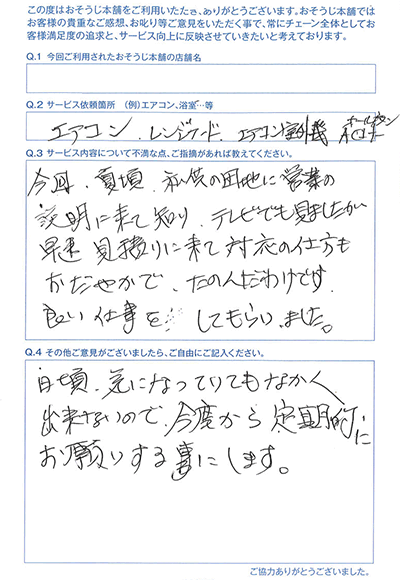 この度はおそうじ本舗をご利用いただき、ありがとうございます。おそうじ本舗では
お客様の貴重なご感想、お叱り等ご意見をいただく事で、常にチェーン全体としてお
客様満足度の追求と、サービス向上に反映させていきたいと考えております。
Q.1 今回ご利用されたおそうじ本舗の店舗名
Q.2 サービス依頼箇所 (例)エアコン、浴室…等
エアコン、レンジフード、エアコン室外機
Q.3 サービス内容について不満な点、ご指摘があれば教えてください。
今回、夏頃、私供の団地に営業の
説明に来て知り、テレビでも見ましたが
早速見積りに来て対応の仕方も
おだやかで、たのんだわけです。
良い仕事をしてもらいました。
Q.4 その他ご意見がございましたら、ご自由にご記入ください。
日頃、気になっていてもなかなか
出来ないので、今度から定期的に
お願いする事にします。
ご協力ありがとうございました。